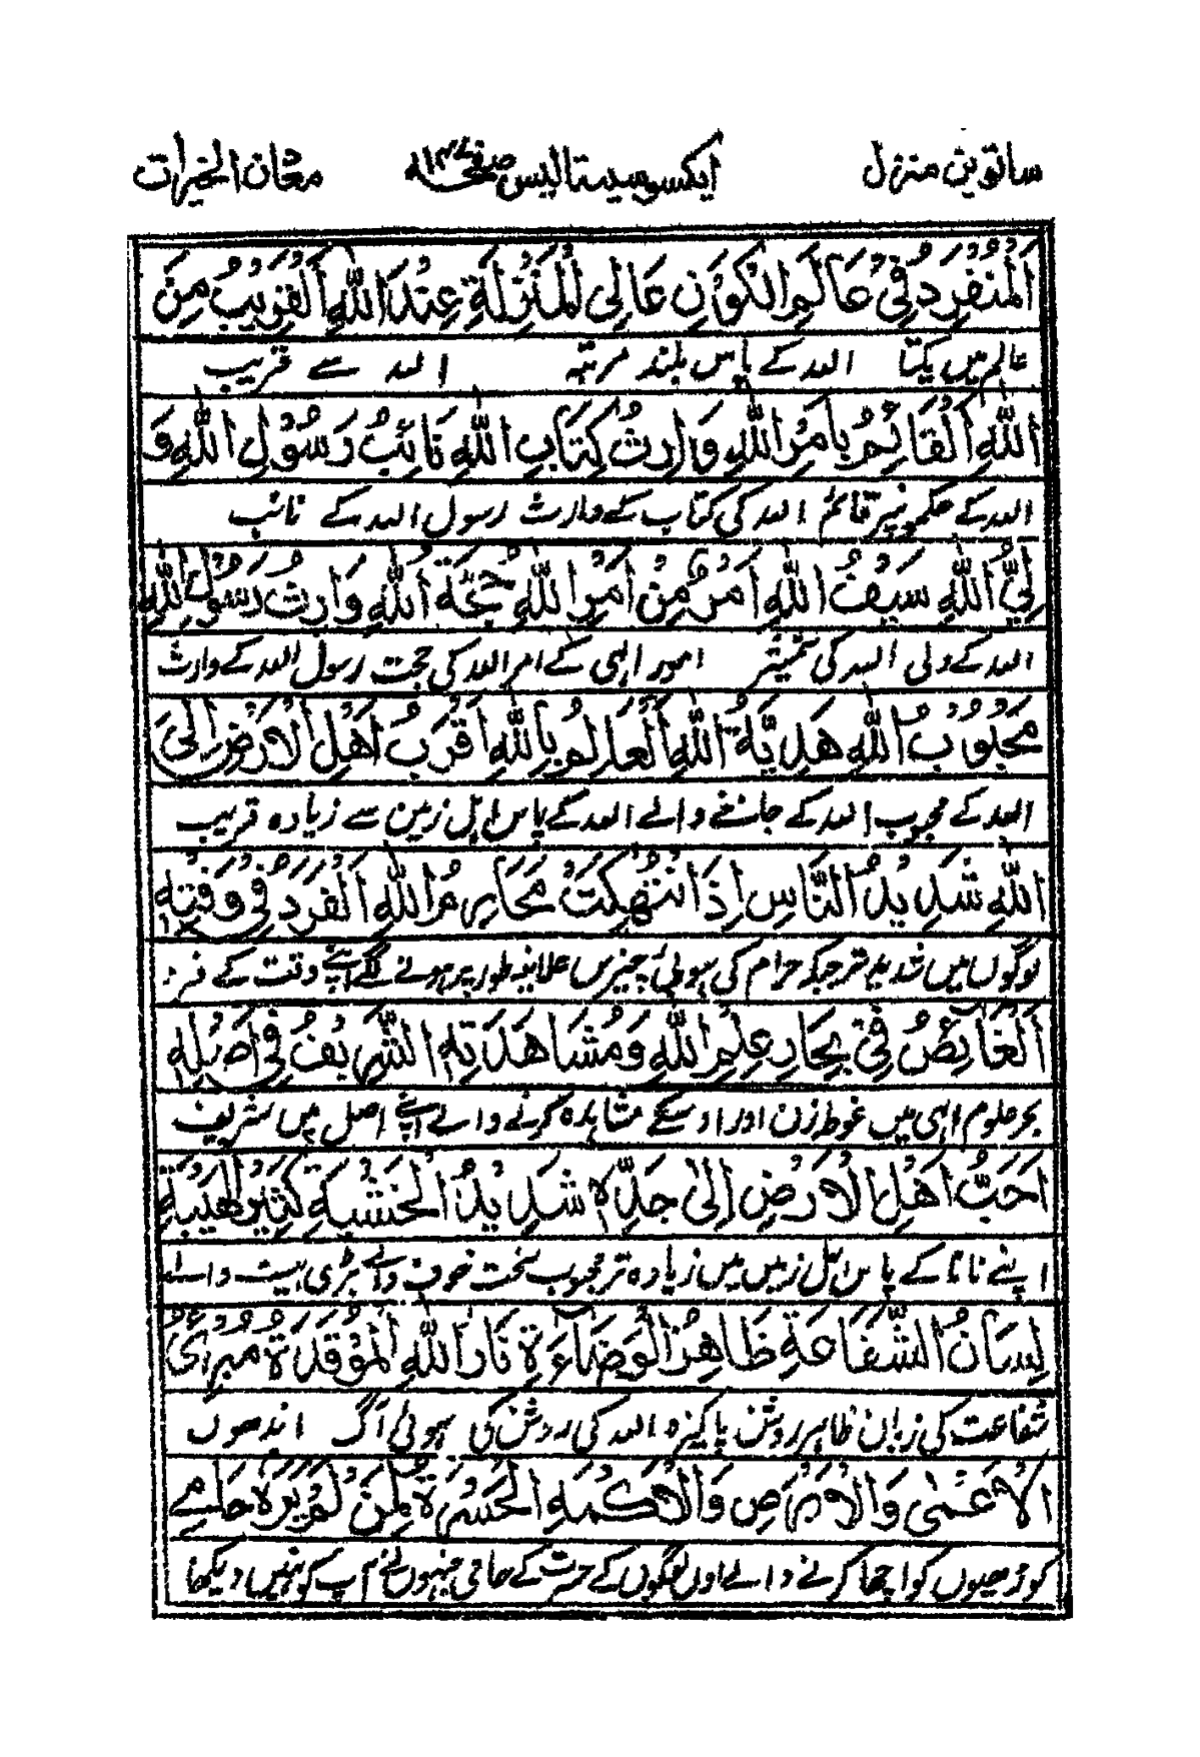 ساتویں منزل ایکسو سینتالیس صفحہ ۱۴۷ معان الخیرات
اَلْمُنْفَرِدُ فِیْ عَالَمِ الْکَوْنِ عَالِی الْمَنْزِلَةِ عِنْدَ اللّٰهِ اَلْقَرِیْبُ مِنَ
عالم میں یکتا اللہ کے پاس بلند مرتبہ اللہ سے قریب
اللّٰهِ اَلْقَائِمُ بِاَمْرِ اللّٰهِ وَارِثُ کِتَابِ اللّٰهِ نَائِبُ رَسُوْلِ اللّٰهِ وَ
اللہ کے حکموں پر قائم اللہ کی کتاب کے وارث رسول اللہ کے نائب
لِیُّ اللّٰهِ سَیْفُ اللّٰهِ اَمْرٌ مِنْ اَمْرِ اللّٰهِ حُجَّةُ اللّٰهِ وَارِثُ رَسُوْلِ اللّٰهِ
اللہ کے ولی اللہ کی شمشیر امور الہی کے امر اللہ کی حجت رسول اللہ کے وارث
مَحْبُوْبُ اللّٰهِ هَدِیَّةُ اللّٰهِ اَلْعَالِمُ بِاللّٰهِ اَقْرَبُ اَهْلِ الْاَرْضِ اِلَی
اللہ کے محبوب اللہ کے جاننے والے اللہ کے پاس اہل زمین سے زیادہ قریب
اللّٰهِ شَدِیْدُ النَّاسِ اِذَا انْتُهِکَتْ مَحَارِمُ اللّٰهِ الْفَرْدُ فِیْ وَقْتِهٖ
لوگوں میں شدید تر جبکہ حرام کی ہوئی چیزیں علانیہ طور پر ہونے لگے اپنے وقت کے فرد
اَلْغَائِصُ فِیْ بِحَارِ عِلْمِ اللّٰهِ وَمُشَاهَدَتِهٖ الشَّرِیْفُ فِیْ اَصْلِهٖ
بحر علوم الہی میں غوطہ زن اور اوسکے مشاہدہ کرنے والے اپنے اصل میں شریف
اَحَبُّ اَهْلِ الْاَرْضِ اِلٰی جَدِّهٖ شَدِیْدُ الْخَشْیَةِ کَثِیْرُ الْهَیْبَةِ
اپنے نانا کے پاس اہل زمیں میں زیادہ تر محبوب سخت خوف والے بڑی ہیبت والے
لِسَانُ الشَّفَاعَةِ ظَاهِرُ الْوَضَاءَةِ نَارُ اللّٰهِ الْمُوْقَدَةُ مُبْرِئُ
شفاعت کی زبان ظاہر روشن پاکیزہ اللہ کی روشن کی ہوئی آگ اندھوں
الْاَعْمٰی وَالْاَبْرَصِ وَالْاَکْمَهِ الْحَسْرَةُ لِمَنْ لَمْ یَرَهٗ حَامِیْ
کوڑھیوں کو اچھا کرنے والے اون لوگوں کے حسرت کے حامی جنہوں نے آپ کو نہیں دیکھا